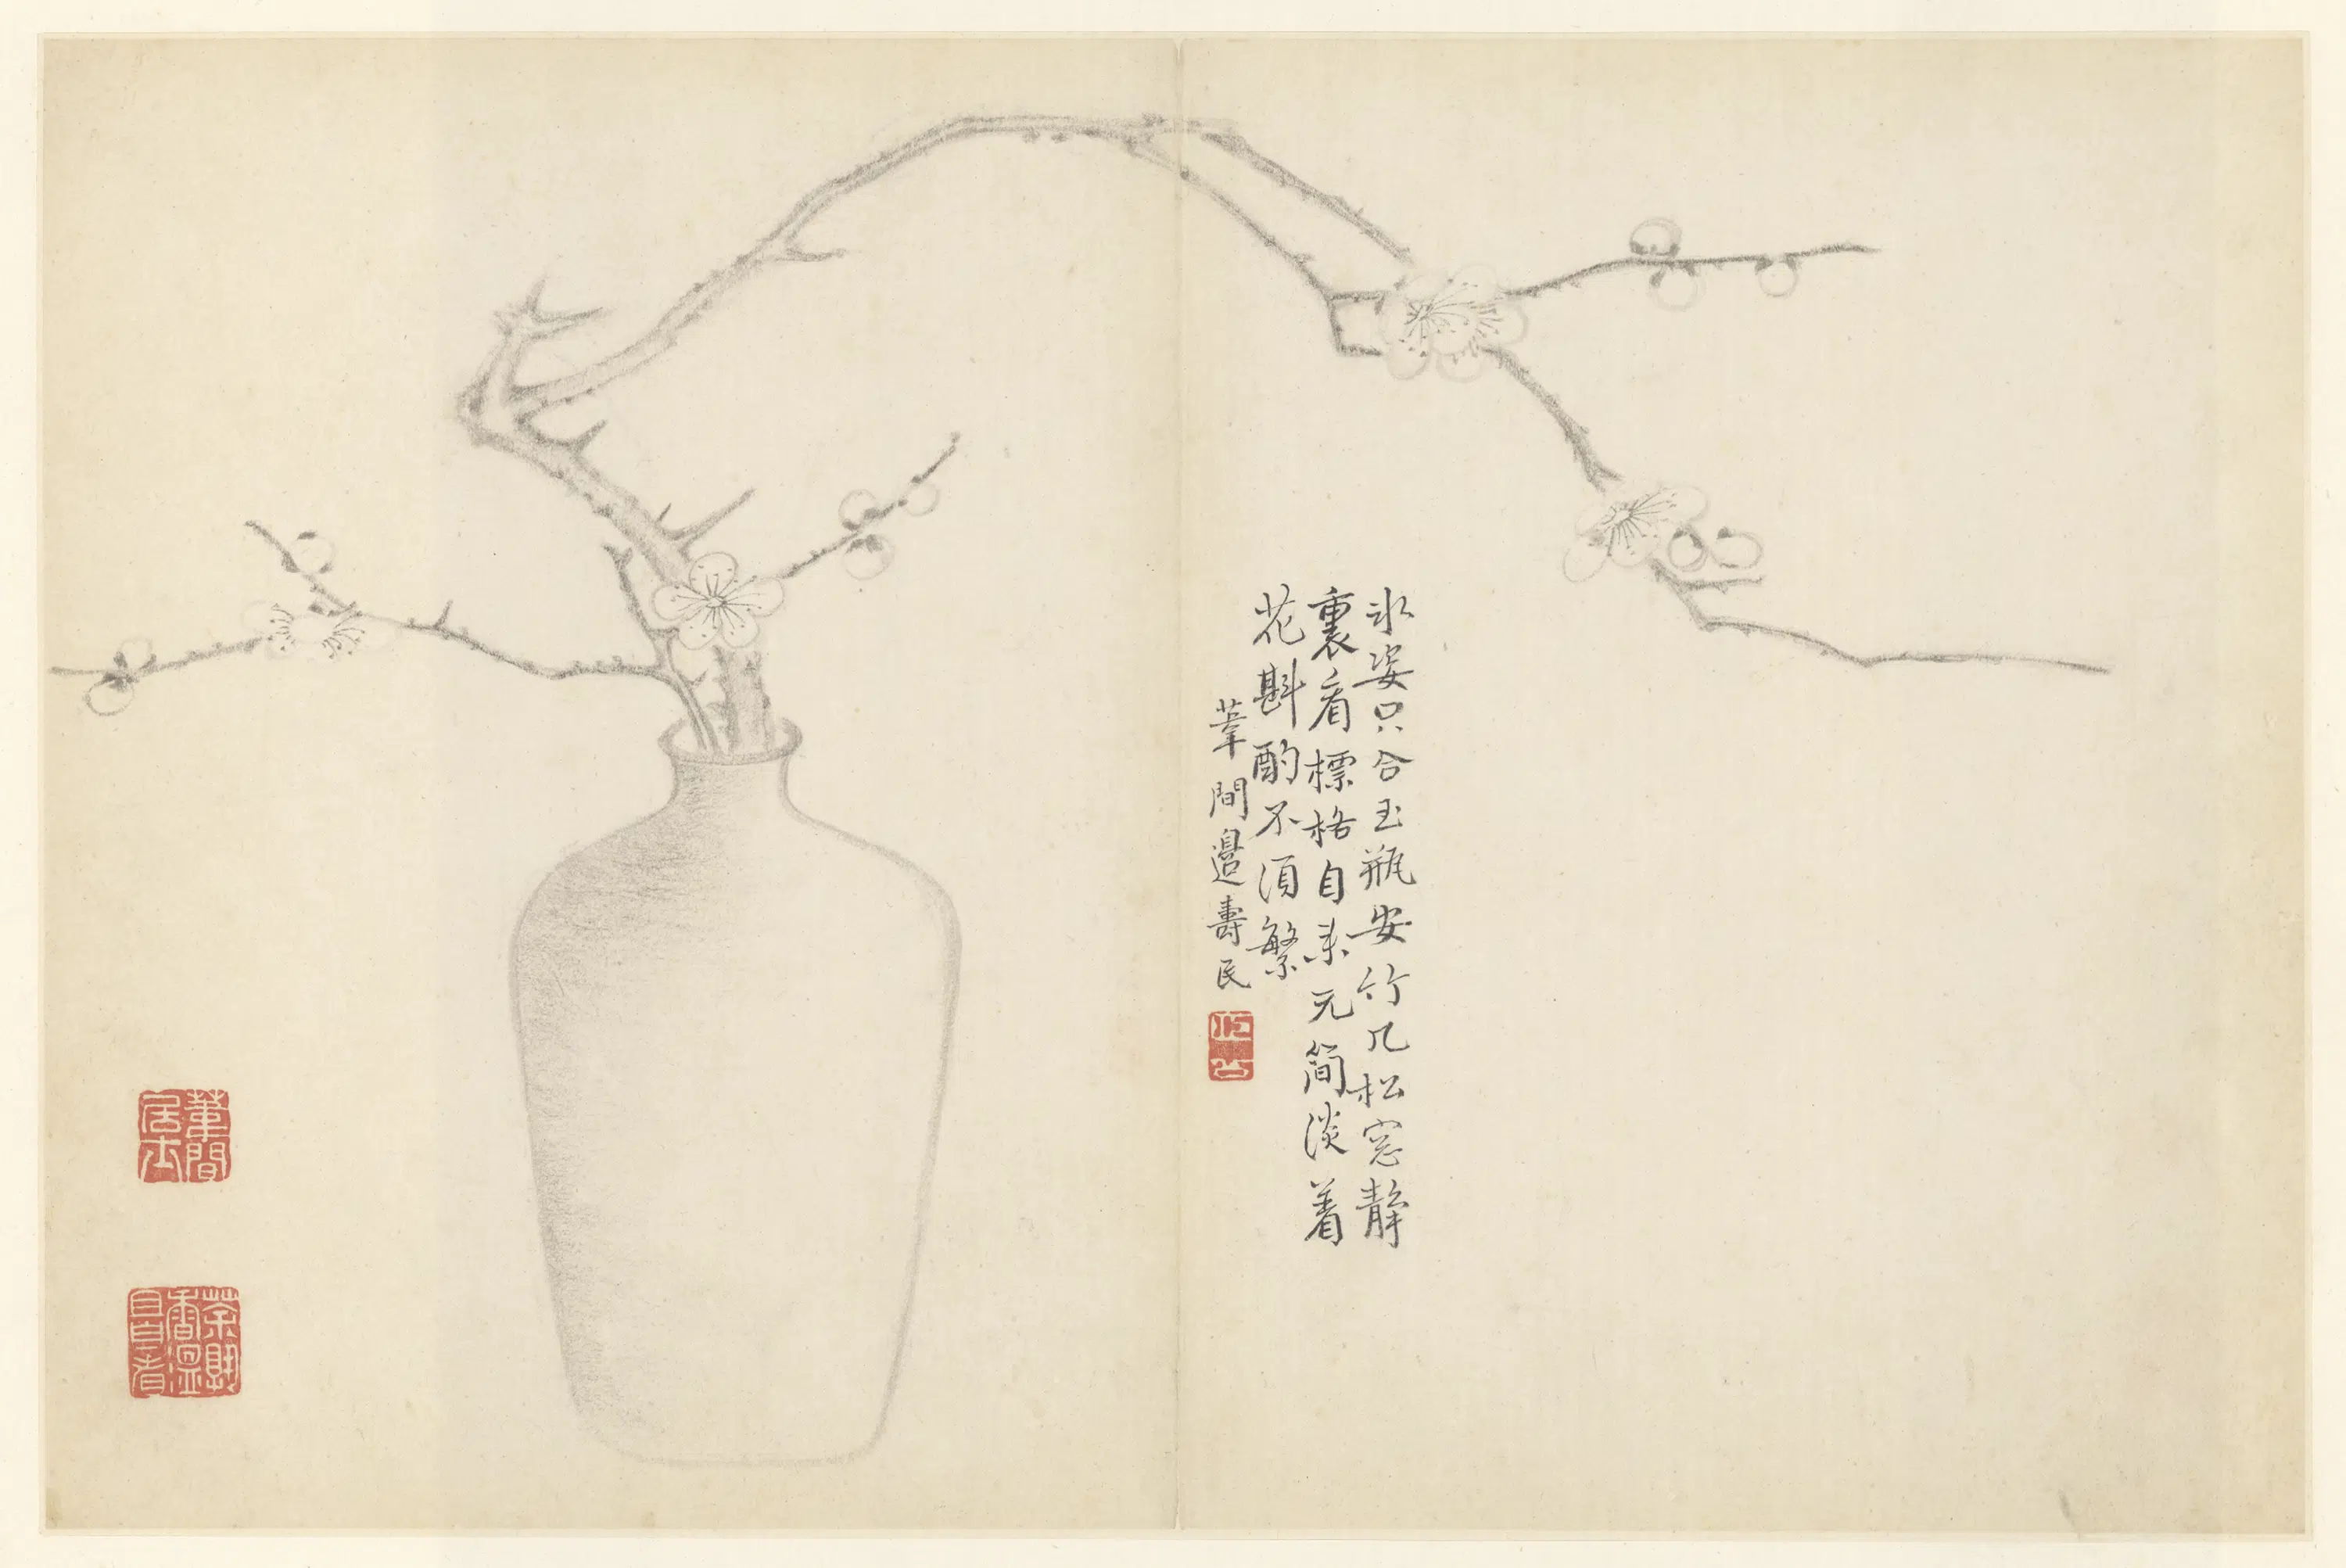 氷姿只合玉瓶安竹几松窓静
裏看標格自来元简淡着
花斟酌不須繁
葦間邉壽民
葦間居士